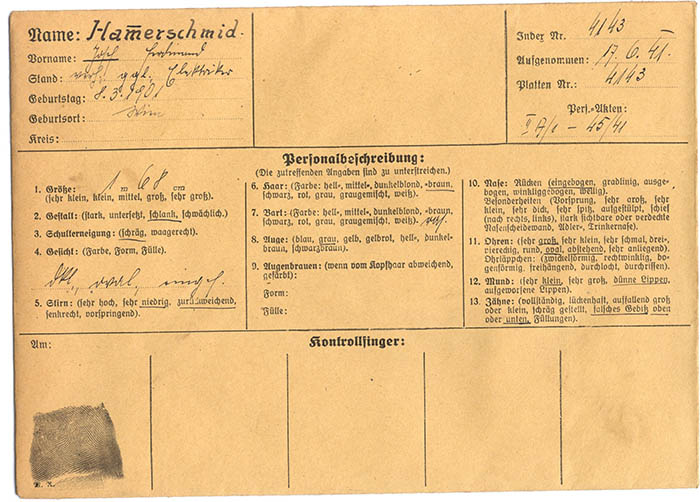 Name: Ham̅erschmid.
Vorname: Josef Ferdinand
Stand: verh. ggl. Elektriker
Geburtstag: 8.3.1901
Geburtsort: Wien
Kreis:
Index Nr. 4143
Aufgenommen: 17.6.41.
Platten Nr.: 4143
Pers.-Akten:
45/41
Personalbeschreibung:
(Die zutreffenden Angaben sind zu unterstreichen.)
1. Größe: 1 m 68 cm
(sehr klein, klein, mittel, groß, sehr groß).
2. Gestalt: (stark, untersetzt, schlank, schwächlich.)
3. Schulterneigung: (schräg, waagerecht).
4. Gesicht: (Farbe, Form, Fülle).
oval, eingef.
5. Stirn: (sehr hoch, sehr niedrig, zurückweichend,
senkrecht, vorspringend).
6. Haar: (Farbe: hell-, mittel-, dunkelblond, -braun,
schwarz, rot, grau, graugemischt, weiß).
7. Bart: (Farbe: hell-, mittel-, dunkelblond, -braun,
schwarz, rot, grau, graugemischt, weiß).
8. Auge: (blau, grau, gelb, gelbrot, hell-, dunkel-
braun, schwarzbraun).
9. Augenbrauen: (wenn vom Kopfhaar abweichend,
gefärbt):
Form:
Fülle:
10. Nase: Rücken (eingebogen, gradlinig, ausge-
bogen, winkliggebogen, wellig).
Besonderheiten (Vorsprung, sehr groß, sehr
klein, sehr dick, sehr spitz, aufgestülpt, schief
(nach rechts, links), stark sichtbare oder verdeckte
Nasenscheidewand, Adler-, Trinkernase).
11. Ohren: (sehr groß, sehr klein, sehr schmal, drei-,
viereckig, rund, oval, abstehend, sehr anliegend).
Ohrläppchen: (zwickelförmig, rechtwinklig, bo-
genförmig, freihängend, durchlocht, durchrissen).
12. Mund: (sehr klein, sehr groß, dünne Lippen,
aufgeworfene Lippen).
13. Zähne: (vollständig, lückenhaft, auffallend groß
oder klein, schräg gestellt, falsches Gebiß oben
oder unten, Füllungen).
Am:
Kontrollfinger: